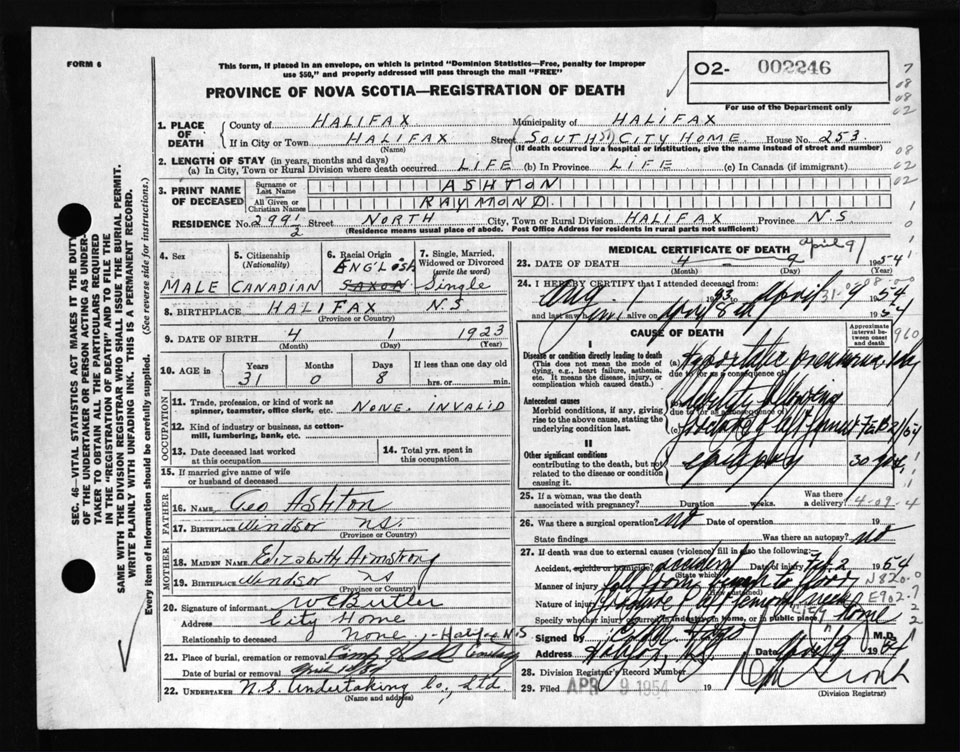 FORM 6
This form, if placed in an envelope, on which is printed "Dominion Statistics—Free, penalty for improper
use $50," and properly addressed will pass through the mail "FREE"
PROVINCE OF NOVA SCOTIA—REGISTRATION OF DEATH
02- 002246
For use of the Department only
7
08
08
02
08
02
02
SEC. 46—VITAL STATISTICS ACT MAKES IT THE DUTY
OF THE UNDERTAKER OR PERSON ACTING AS UNDER-
TAKER TO OBTAIN ALL THE PARTICULARS REQUIRED
IN THE "REGISTRATION OF DEATH" AND TO FILE THE
SAME WITH THE DIVISION REGISTRAR WHO SHALL ISSUE THE BURIAL PERMIT.
WRITE PLAINLY WITH UNFADING INK. THIS IS A PERMANENT RECORD.
Every item of information should be carefully supplied. (See reverse side for instructions.)
1. PLACE OF DEATH
County of HALIFAX Municipality of HALIFAX
If in City or Town HALIFAX Street SOUTH St CITY HOME House No. 253
(Name) (If death occurred in a hospital or institution, give the name instead of street and number)
2. LENGTH OF STAY (in years, months and days)
(a) In City, Town or Rural Division where death occurred LIFE (b) In Province LIFE (c) In Canada (if immigrant)
3. PRINT NAME OF DECEASED
Surname or Last Name ASHTON
All Given or Christian Names RAYMOND
RESIDENCE No. 299 1/2 Street NORTH City, Town or Rural Division HALIFAX Province N.S
(Residence means usual place of abode. Post Office Address for residents in rural parts not sufficient)
4. Sex
MALE
5. Citizenship (Nationality)
CANADIAN
6. Racial Origin
ENGLISH
SAXON
7. Single, Married, Widowed or Divorced (write the word)
Single
8. BIRTHPLACE HALIFAX N.S
(Province or Country)
9. DATE OF BIRTH 4 1 1923
(Month) (Day) (Year)
10. AGE in Years Months Days If less than one day old
31 0 8 hrs. or min.
OCCUPATION
11. Trade, profession, or kind of work as spinner, teamster, office clerk, etc. NONE. INVALID
12. Kind of industry or business, as cotton-mill, lumbering, bank, etc.
13. Date deceased last worked at this occupation
14. Total yrs. spent in this occupation
15. If married give name of wife or husband of deceased
FATHER
16. NAME Geo Ashton
17. BIRTHPLACE Windsor NS.
(Province or Country)
MOTHER
18. MAIDEN NAME Elizabeth Armstrong
19. BIRTHPLACE Windsor NS
(Province or Country)
20. Signature of informant W C Butler
Address City Home
Relationship to deceased None - Halifax N.S
21. Place of burial, cremation or removal Camp Hill Cemetery
Date of burial or removal April
22. UNDERTAKER N.S. Undertaking Co., Ltd
(Name and address)
MEDICAL CERTIFICATE OF DEATH
April 9
23. DATE OF DEATH 4 — 9 1954
(Month) (Day) (Year)
24. I HEREBY CERTIFY that I attended deceased from:
Aug. 1 April 9 1954
and last saw him alive on April 8th 1954
CAUSE OF DEATH
Approximate interval between onset and death
960
I
Disease or condition directly leading to death
(This does not mean the mode of dying, e.g., heart failure, asthenia, etc. It means the disease, injury, or complication which caused death.)
(a) Hypostatic pneumonia
due to (or as a consequence of)
Antecedent causes
Morbid conditions, if any, giving rise to the above cause, stating the underlying condition last.
(b)
due to (or as a consequence of)
(c) Fracture of left femur Feb 2/54
II
Other significant conditions
contributing to the death, but not related to the disease or condition causing it.
epilepsy 30 years
25. If a woman, was the death associated with pregnancy? Duration weeks. Was there a delivery? 4-09-4
26. Was there a surgical operation? No Date of operation 19
State findings Was there an autopsy? No
27. If death was due to external causes (violence) fill in also the following:
Accident, suicide or homicide? accident Date of injury Feb. 2 1954
(State which)
Manner of injury fell from bench to floor N820-0
(How sustained)
Nature of injury Fracture left femur neck E902-7
Specify whether injury occurred in industry, in home, or in public place City Home
Signed by M.D.
Address Halifax, N.S Date April 9 1954
28. Division Registrar's Record Number
29. Filed APR 9 1954 19
(Division Registrar)